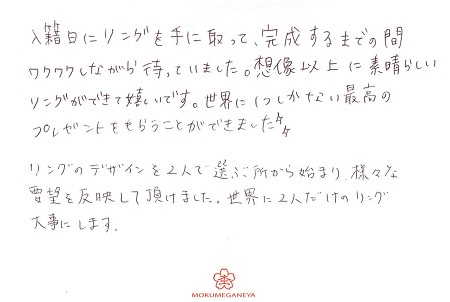 入籍日にリングを手に取って、完成するまでの間
ワクワクしながら待っていました。想像以上に素晴らしい
リングができて嬉しいです。世界に1つしかない最高の
プレゼントをもらうことができました
リングのデザインを2人で選ぶ所から始まり、様々な
要望を反映して頂けました。世界に2人だけのリング
大事にします。
MOKUMEGANEYA